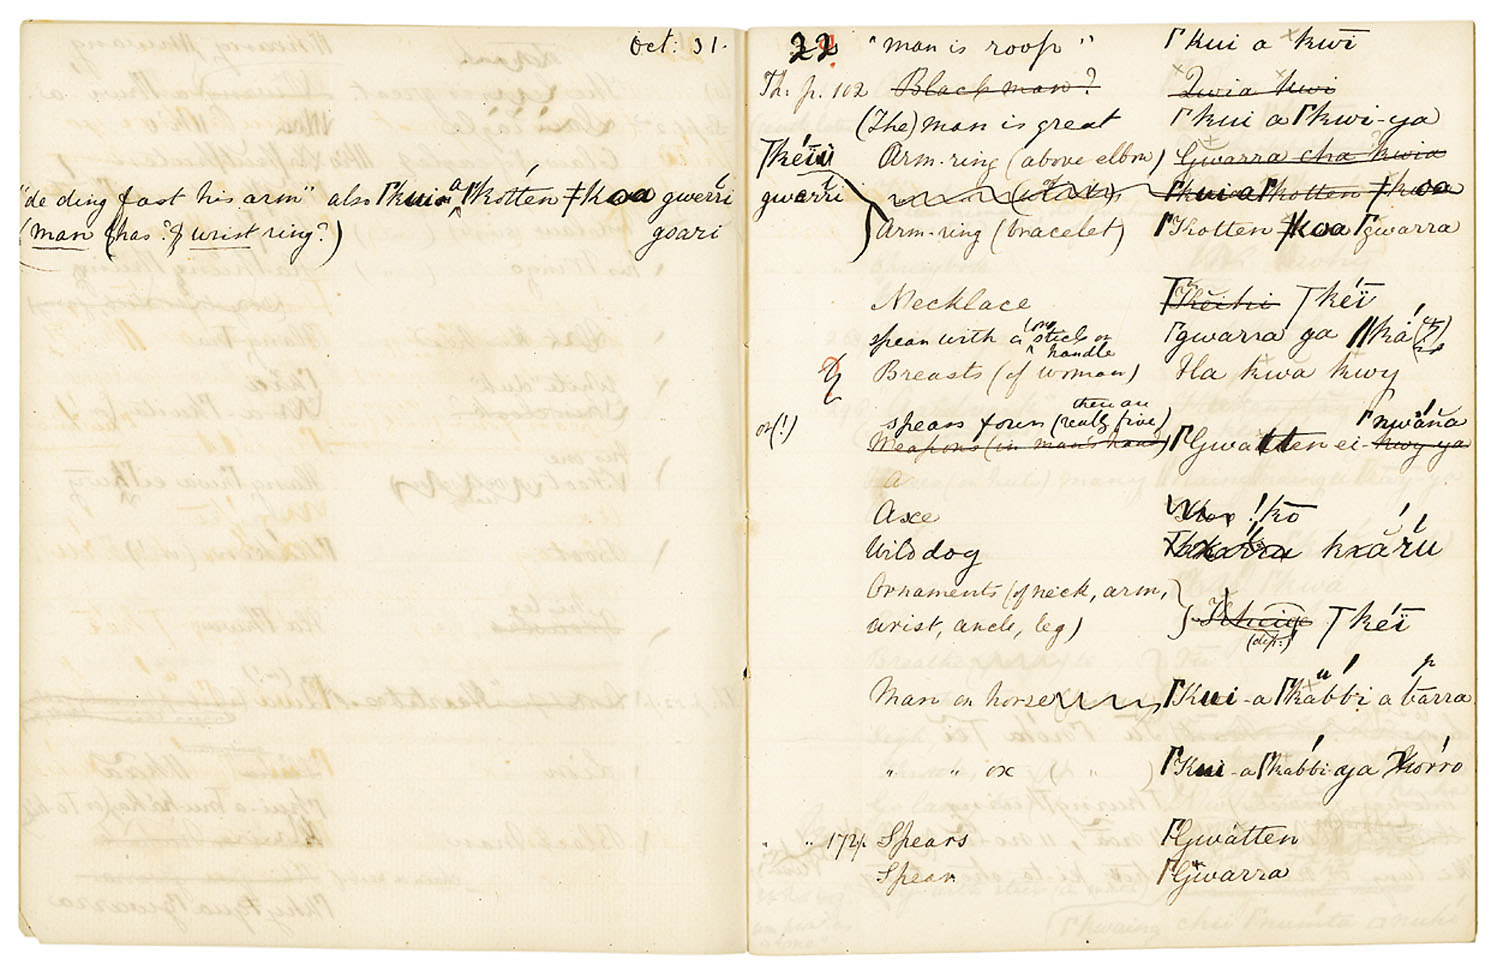 Oct: 31.
"de ding fast his arm" also ꞁkui a ꞁkotten ǂkoa gwerri
(man (has?) wrist ring?) goari
22 "man is roof" ꞁkui a kwī
Th: p. 102 Black man? kwi
(The) man is great ꞁkui a ꞁkwi-ya
Arm-ring (above elbow) Gwarra cha kwia
gwerri ꞁkui a ꞁkotten ǂkoa
Arm-ring (bracelet) ꞁKotten ǂkoa ꞁgwarra
Necklace
spear with a long stick or handle ꞁgwarra ga ǁká
Breasts (of woman) Ha kwa kwy
or (!) spears four (there are really five) ꞁnwāna
Weapons (in man's hand) ꞁGwatten ei-kwy-ya
a
Axe !kō
Wild dog kxáru
Ornaments (of neck, arm,
wrist, ancle, leg)
Man on horse ꞁKui-a ꞁkabbi a barra
" " ox ( " ) ꞁKui-a ꞁkabbi-ya korro
" " 172 Spears ꞁGwatten
Spear ꞁGwarra